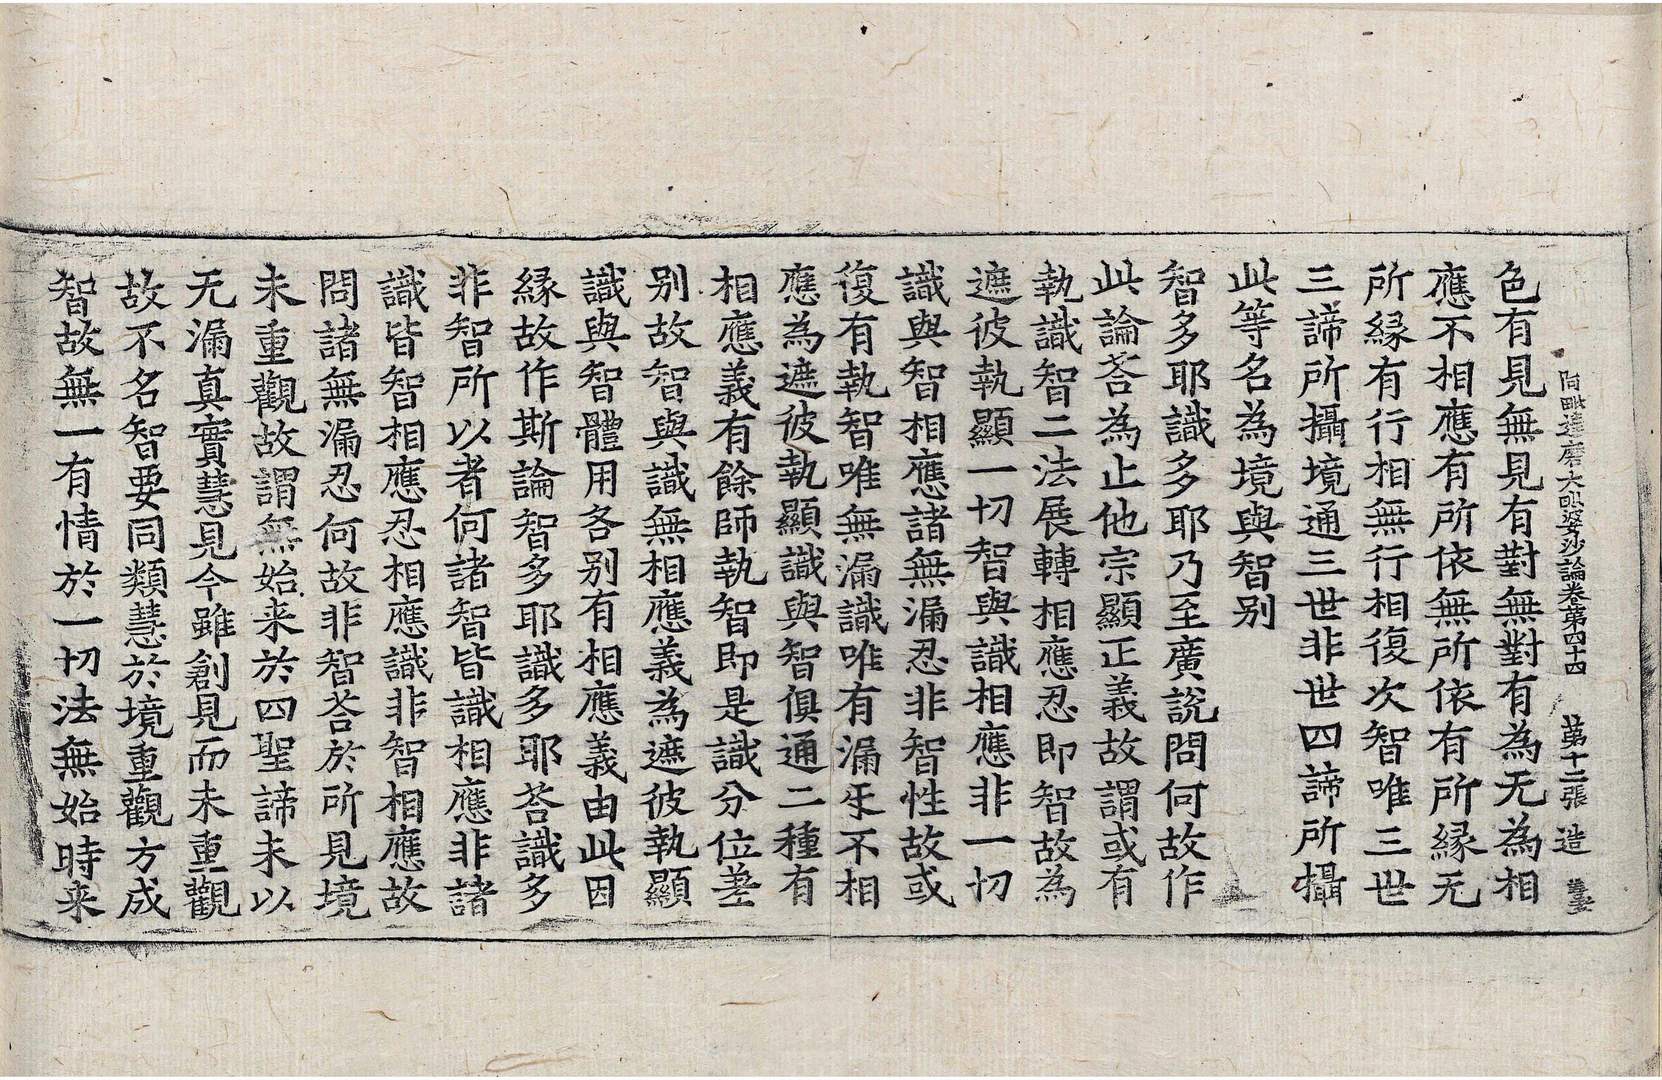 阿毗達磨大毗婆沙論卷第四十四　第十二張　造
色有見無見有對無對有為无為相
應不相應有所依無所依有所縁无
所縁有行相無行相復次智唯三世
三諦所攝境通三世非世四諦所攝
此等名為境與智别
智多耶識多耶乃至廣說問何故作
此論荅為止他宗顯正義故謂或有
執識智二法展轉相應忍即智故為
遮彼執顯一切智與識相應非一切
識與智相應諸無漏忍非智性故或
復有執智唯無漏識唯有漏㸦不相
應為遮彼執顯識與智俱通二種有
相應義有餘師執智即是識分位差
别故智與識無相應義為遮彼執顯
識與智體用各别有相應義由此因
縁故作斯論智多耶識多耶荅識多
非智所以者何諸智皆識相應非諸
識皆智相應忍相應識非智相應故
問諸無漏忍何故非智荅於所見境
未重觀故謂無始来於四聖諦未以
无漏真實慧見今雖創見而未重觀
故不名智要同類慧於境重觀方成
智故無一有情於一切法無始時来